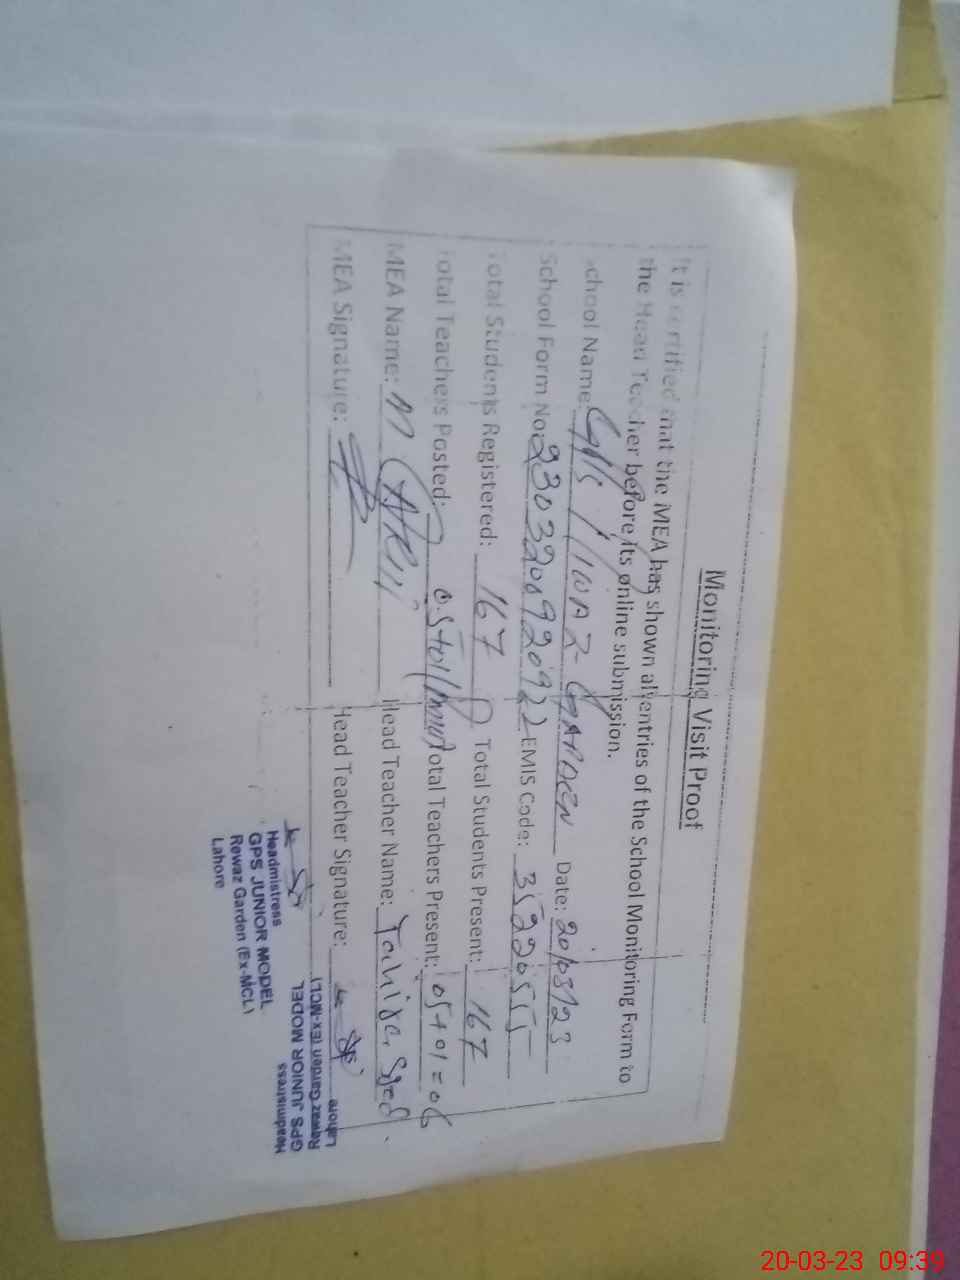 Monitoring Visit Proof
It is certified that the MEA has shown all entries of the School Monitoring Form to
the Head Teacher before its online submission.
School Name: GARDEN Date: 20/03/23
School Form No: EMIS Code: 35220555
Total Students Registered: 167 Total Students Present: 167
Total Teachers Posted: Total Teachers Present: 05+01=06
MEA Name: Head Teacher Name: Syed.
MEA Signature: Head Teacher Signature:
Headmistress
GPS JUNIOR MODEL
Rewaz Garden (Ex-MCL)
Lahore
Headmistress
GPS JUNIOR MODEL
Rewaz Garden (Ex-MCL)
Lahore
20-03-23 09:39